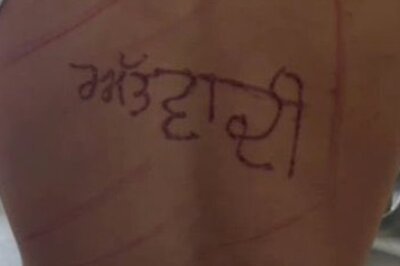 ਅੱਤਵਾਦੀ